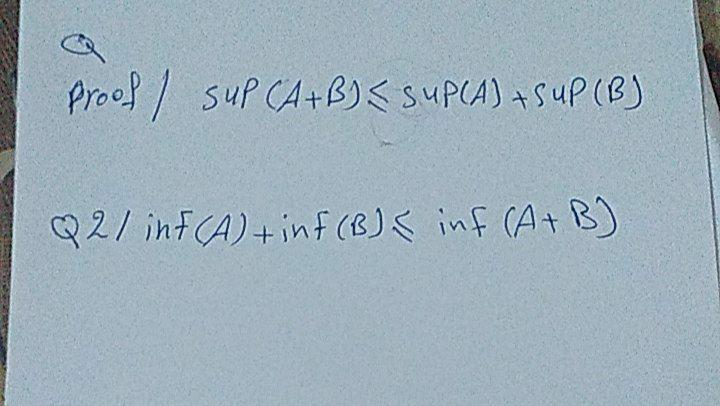 Q
Proof / sup (A+B) ≤ sup(A) + sup (B)
Q2/ inf (A) + inf (B) ≤ inf (A+B)